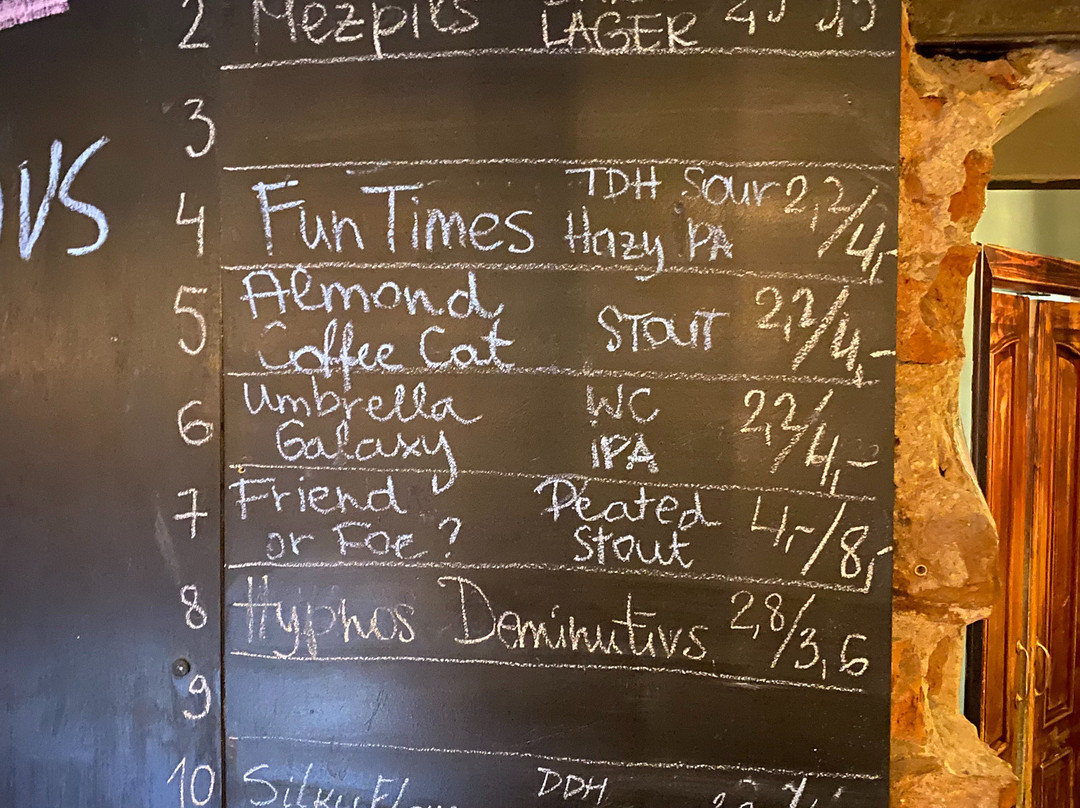 VS
2 Mezpils LAGER
3
4 Fun Times TDH Sour Hazy IPA 2,2/4,-
5 Almond Coffee Cat STOUT 2,2/4,-
6 Umbrella Galaxy WC IPA 2,2/4,-
7 Friend or Foe? Peated Stout 4,-/8,-
8 Hyphos Deminutivs 2,8/3,5
9
10 DDH